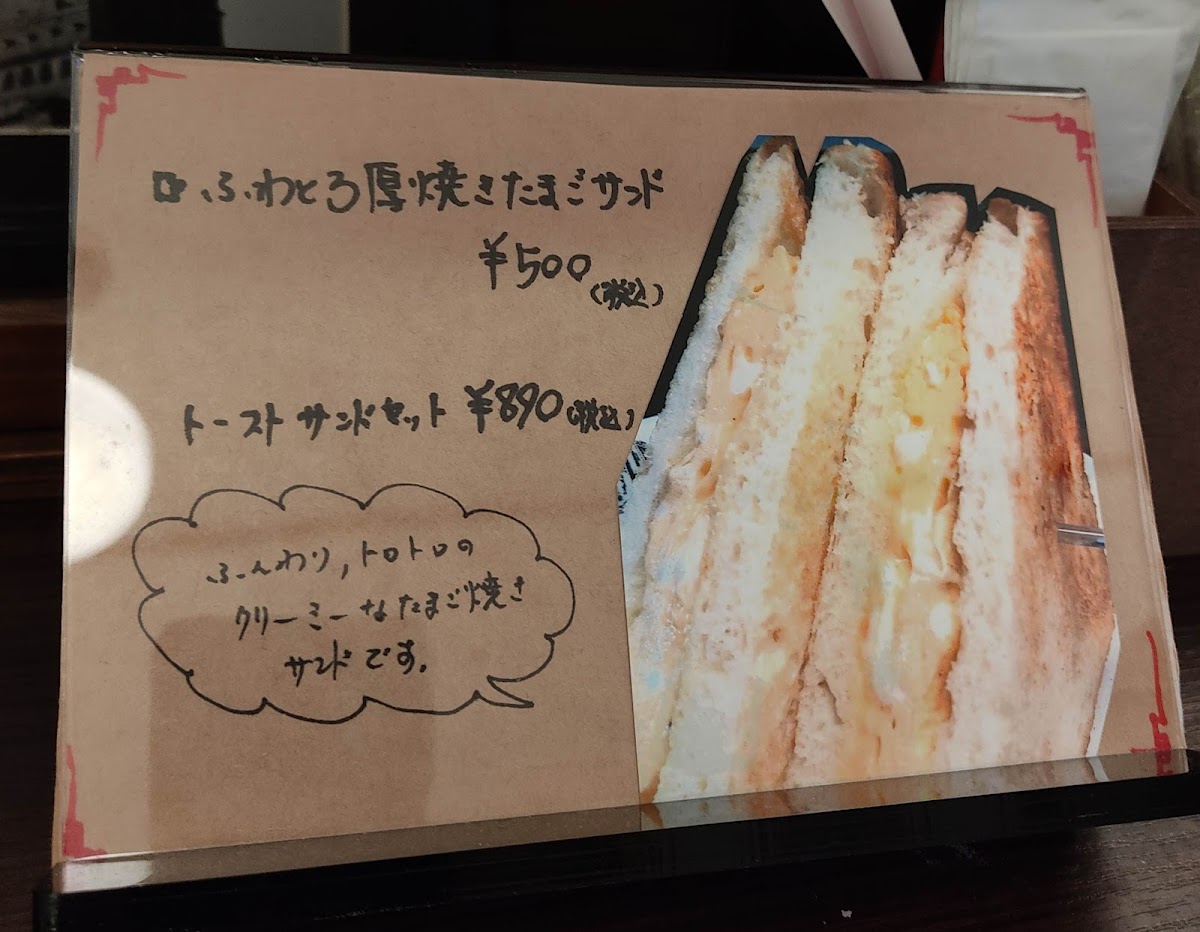 ロふわとろ厚焼きたまごサンド
¥500
(税込)
トーストサンドセット ¥890(税込)
ふんわり,トロトロの
クリーミーなたまご焼き
サンドです。